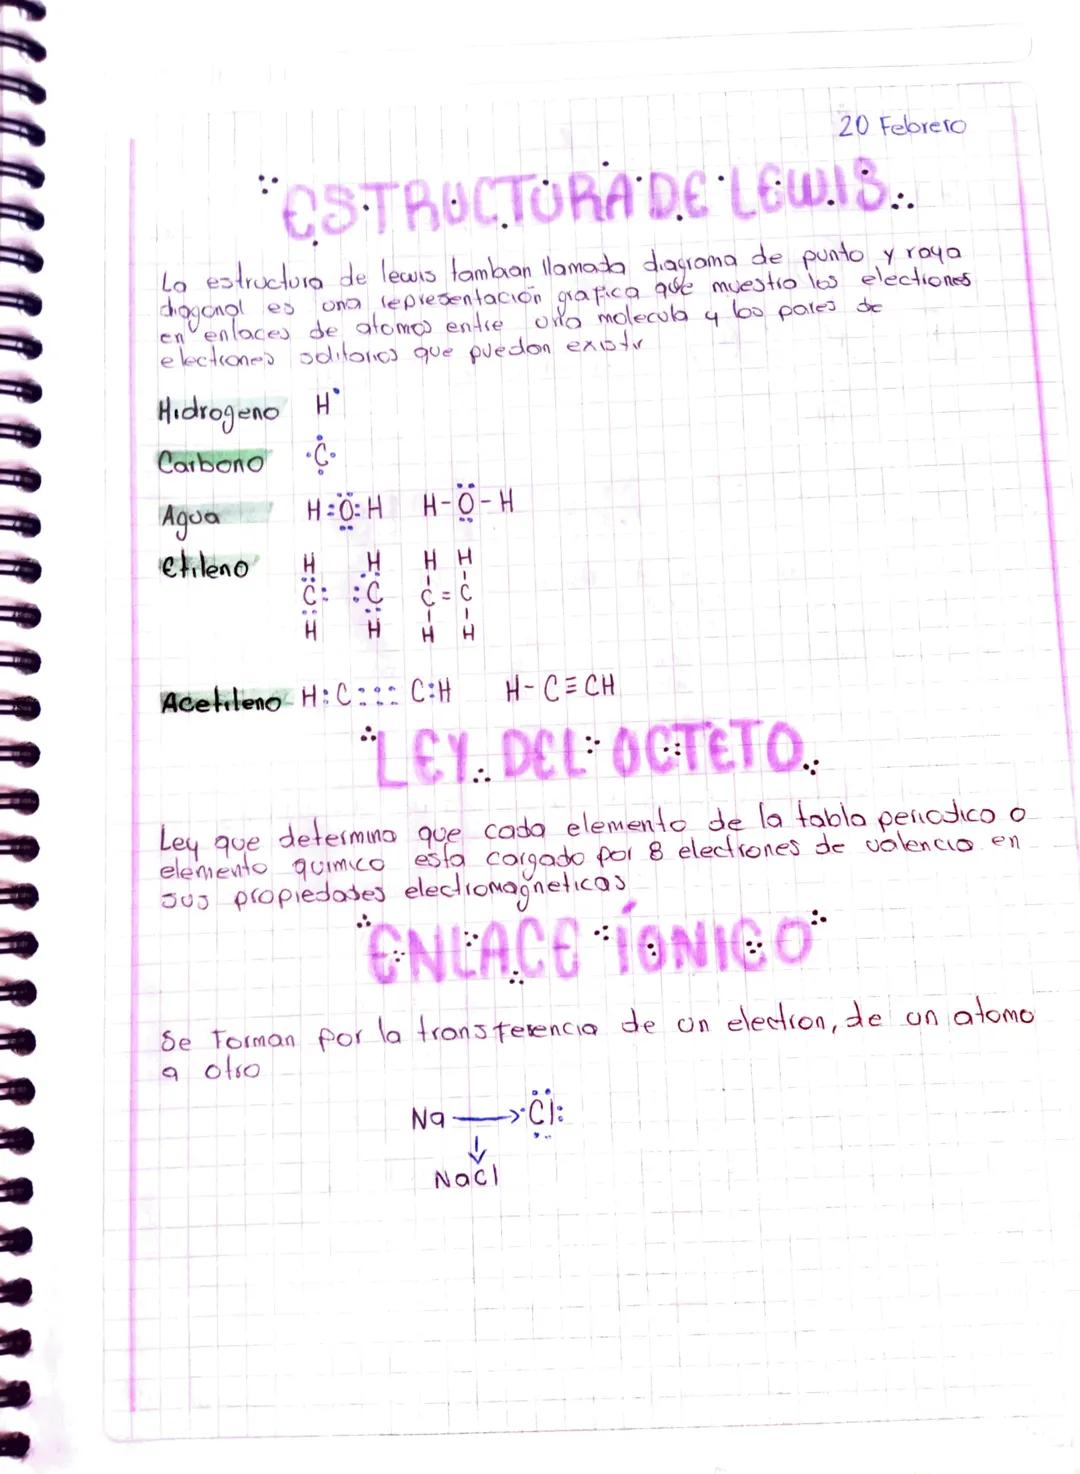 20 Febrero
ESTRUCTURA DE LEWIS
La estructura de lewis tambian llamada diagrama de punto y raya
diagonal es una representación grafica que muestra los electrones
en enlaces de atomos entre una molecula y los pares de
electrones solitarios que puedan existir
Hidrogeno H•
Carbono ·C·
Agua H:O:H H-O-H
Etileno H H H H
C: :C C=C
H H H H
Acetileno H:C::: C:H H-C≡CH
LEY DEL OCTETO
Ley que determina que cada elemento de la tabla periodico o
elemento quimico esta cargado por 8 electrones de valencia en
sus propiedades electromagneticas
ENLACE IÓNICO
Se Forman por la transferencia de un electron, de un atomo
a otro
Na → Cl:
↓
NaCl